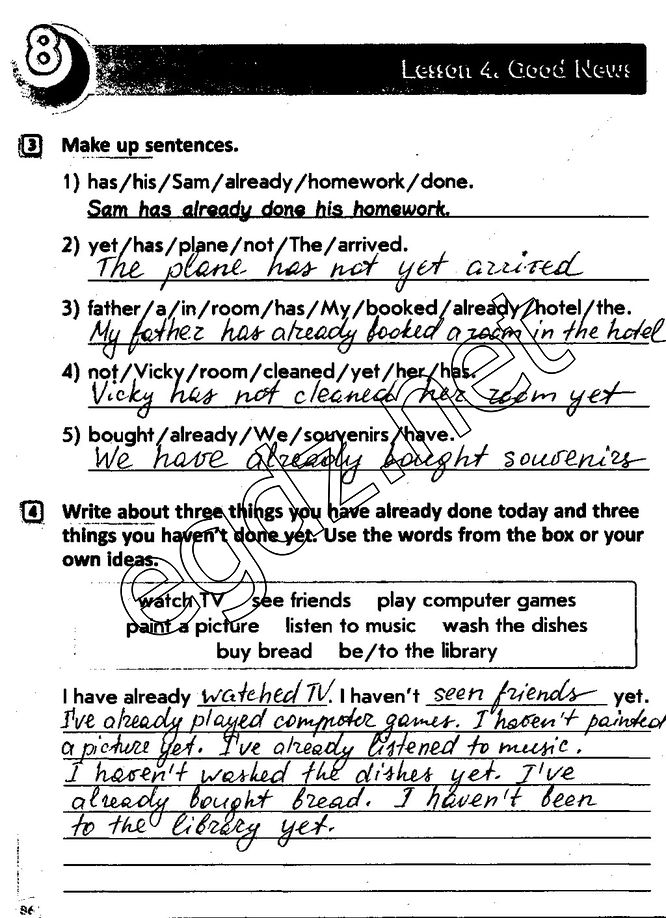 8
Lesson 4. Good News
3 Make up sentences.
1) has/his/Sam/already/homework/done.
Sam has already done his homework.
2) yet/has/plane/not/The/arrived.
The plane has not yet arrived
3) father/a/in/room/has/My/booked/already/hotel/the.
My father has already booked a room in the hotel
4) not/Vicky/room/cleaned/yet/her/has.
Vicky has not cleaned her room yet
5) bought/already/We/souvenirs/have.
We have already bought souvenirs
4 Write about three things you have already done today and three
things you haven't done yet. Use the words from the box or your
own ideas.
watch TV see friends play computer games
paint a picture listen to music wash the dishes
buy bread be/to the library
I have already watched TV. I haven't seen friends yet.
I've already played computer games. I haven't painted
a picture yet. I've already listened to music.
I haven't washed the dishes yet. I've
already bought bread. I haven't been
to the library yet.
86
egdz.net